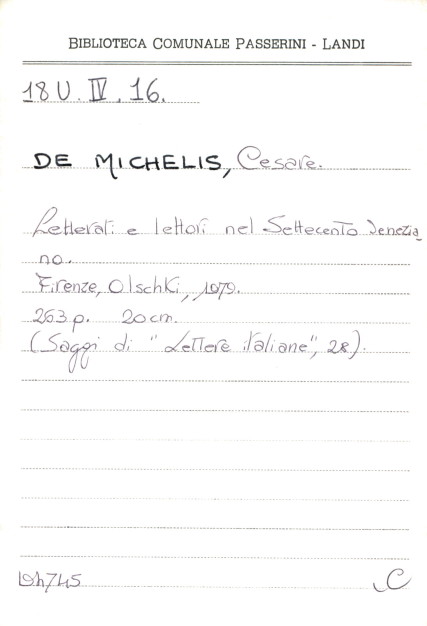 BIBLIOTECA COMUNALE PASSERINI - LANDI
18 U. IV. 16.
DE MICHELIS, Cesare.
Letterati e lettori nel Settecento venezia
no.
Firenze, Olschki, 1979.
263 p. 20 cm.
(Saggi di "Lettere italiane", 28).
C